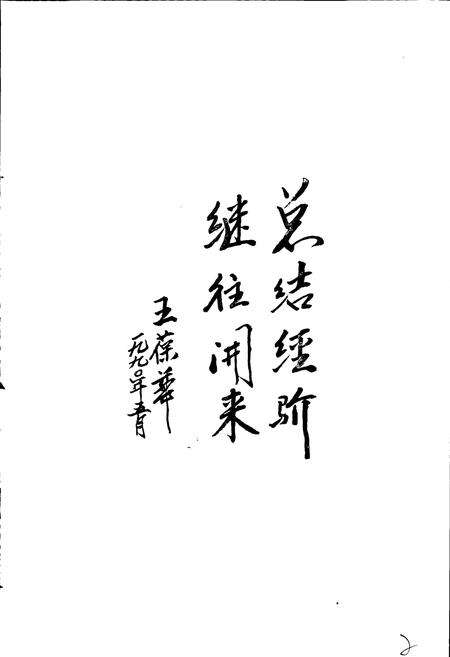 总结经验
继往开来
王葆华
一九九〇年五月
2